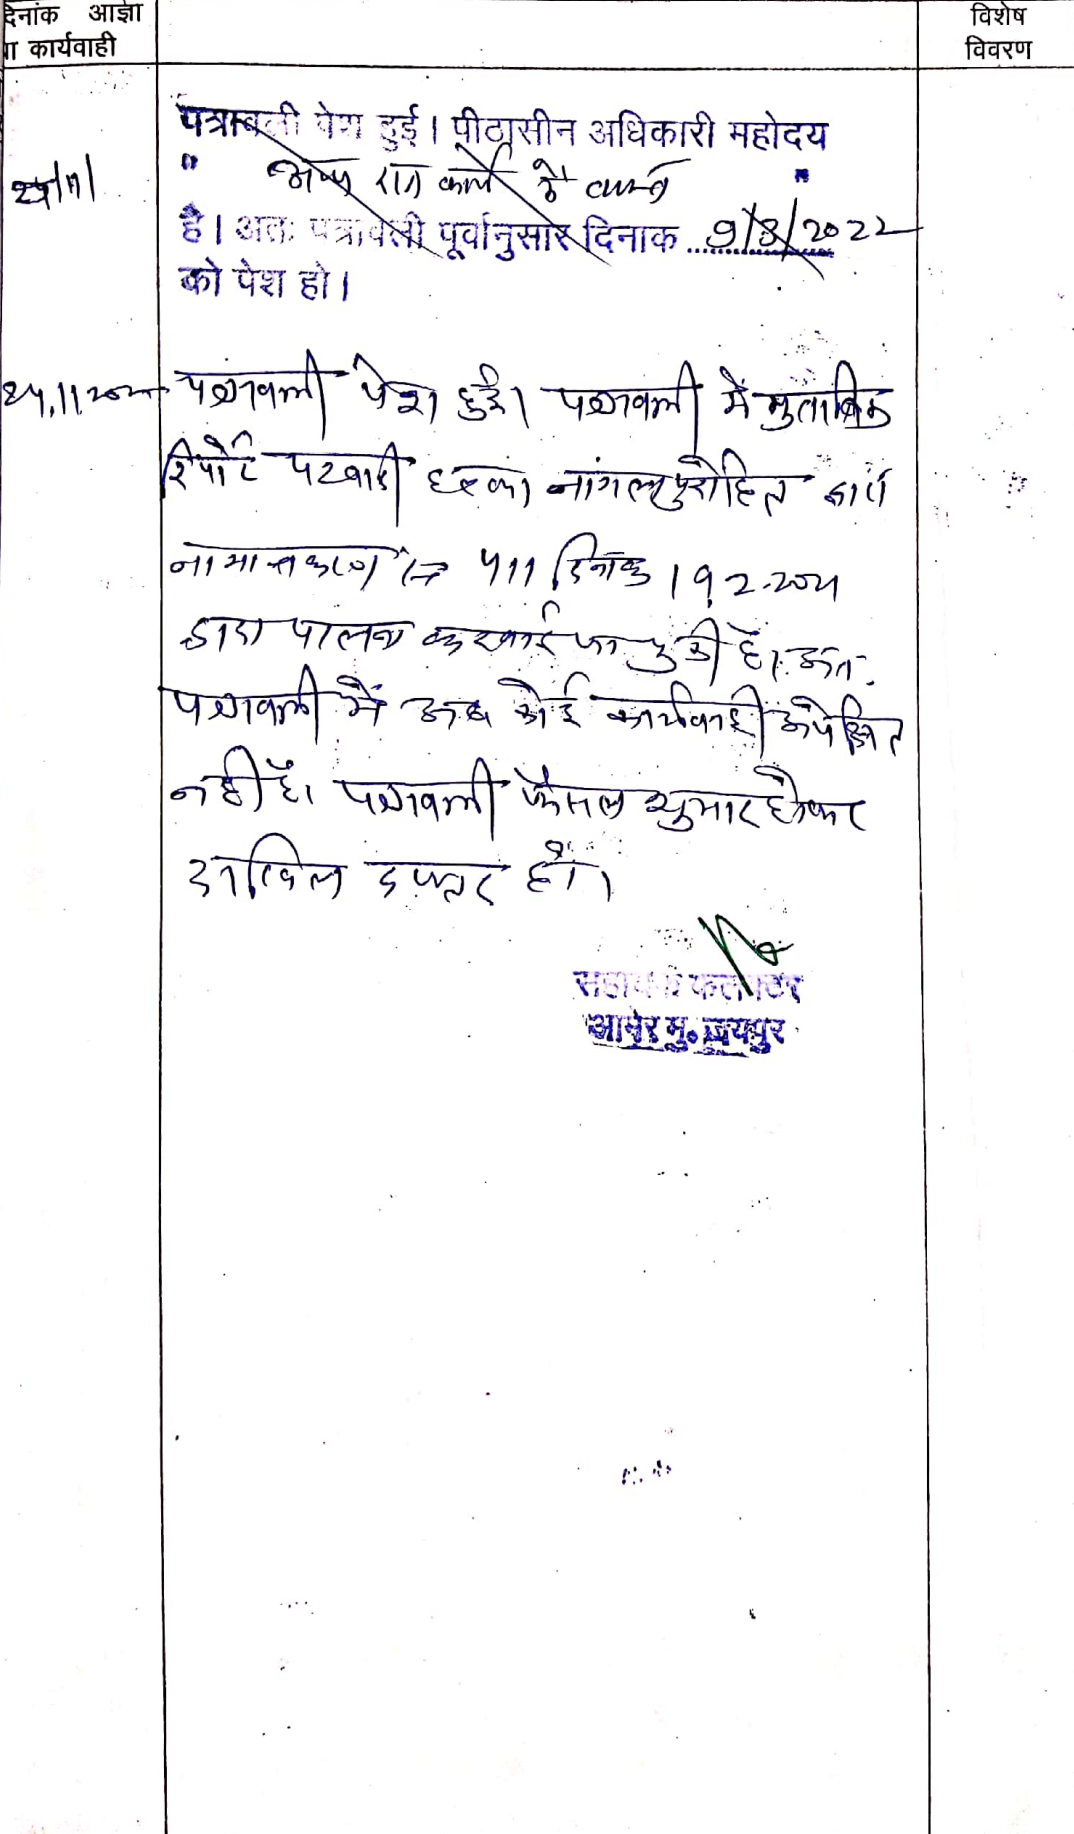 दिनांक आज्ञा
ा कार्यवाही
विशेष
विवरण
पत्रावली पेश हुई। पीठासीन अधिकारी महोदय
" अन्य राज कार्य में व्यस्त "
है। अतः पत्रावली पूर्वानुसार दिनाक 9/3/2022
को पेश हो।
पत्रावली पेश हुई। पत्रावली में मुताबिक
रिपोर्ट पटवारी हल्का नांगल पुरोहित
नामान्तकरण 411 दिनांक 19.2.2021
द्वारा पालना करवाई जा चुकी है। अतः
पत्रावली में अब कोई कार्यवाही अपेक्षित
नहीं है। पत्रावली फैसल शुमार होकर
दाखिल दफ्तर हो।
सहायक कलक्टर
आमेर मु० जयपुर